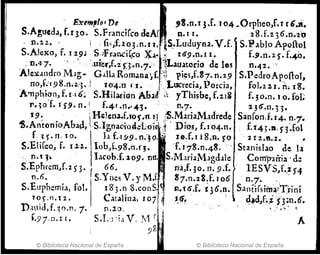 Exemplos De
S.Agueda, f.130.
n.22.
S.Alexo, f. 129.
n.47.
Alexandro Mag-
no,f.198.n.23.
Amphion,f.116.
r.30 f. 159.n.
19.
S.AntonioAbad,
f. 15.n.10.
S.Eliseo, f. 122.
n.13.
S.Ephrem,f.253.
n.6.
S.Euphemia, fol.
105.n.12.
Dauid,f.30.n. 7.
f.97.n.11.
S.Francisco de A
fi.,f.203.n.11.
S.Francisco Xa-
uier,f.253.n.7.
Galla Romana,f.
104.n 11.
S.Hilarion Abad
f.41.n.43.
Helena.f.105.n 11
S.Ignacio de Loio
la f.199.n.30.
Iob,f.98.n.13.
Iacob.f.209. nn.
66.
S.Ynes V.y M.f
183.n 8.con S.
Catalina. 107
n.20.
98
98.n.13.f. 104.
n.11.
S.Luduyna.V.f.
169.n.11.
Lauatorio de los
pies,f.87.n.29
Lucrecia, Porcia,
y Thisbe, f.218
n.7.
S.MariaMadrede
Dios, f.104.n.
10.f.118.n.50
f.178.n.48.
S.MariaMagdale
na,f.30.n. 9.f.
87.n.28,f.106
n.16.f. 136.n.
16.
Orpheo,f.116.n.
28.f.236.n.20
S.Pablo Apostol
f.9.n.25.f.40.
n.42.
S.PedroApostol,
fol.221.n.18.
f.30.n.10.fol.
236.n.33.
Sanson.f.14. n.7.
f.143.n.53.fol
212.n.2.
Stanislao de la
Compañia de
IESVS,f.254
n.7.
Santissima Trini
dad,f.2 53.n.6.
A
© Biblioteca Nacional de España
© Biblioteca Nacional de España